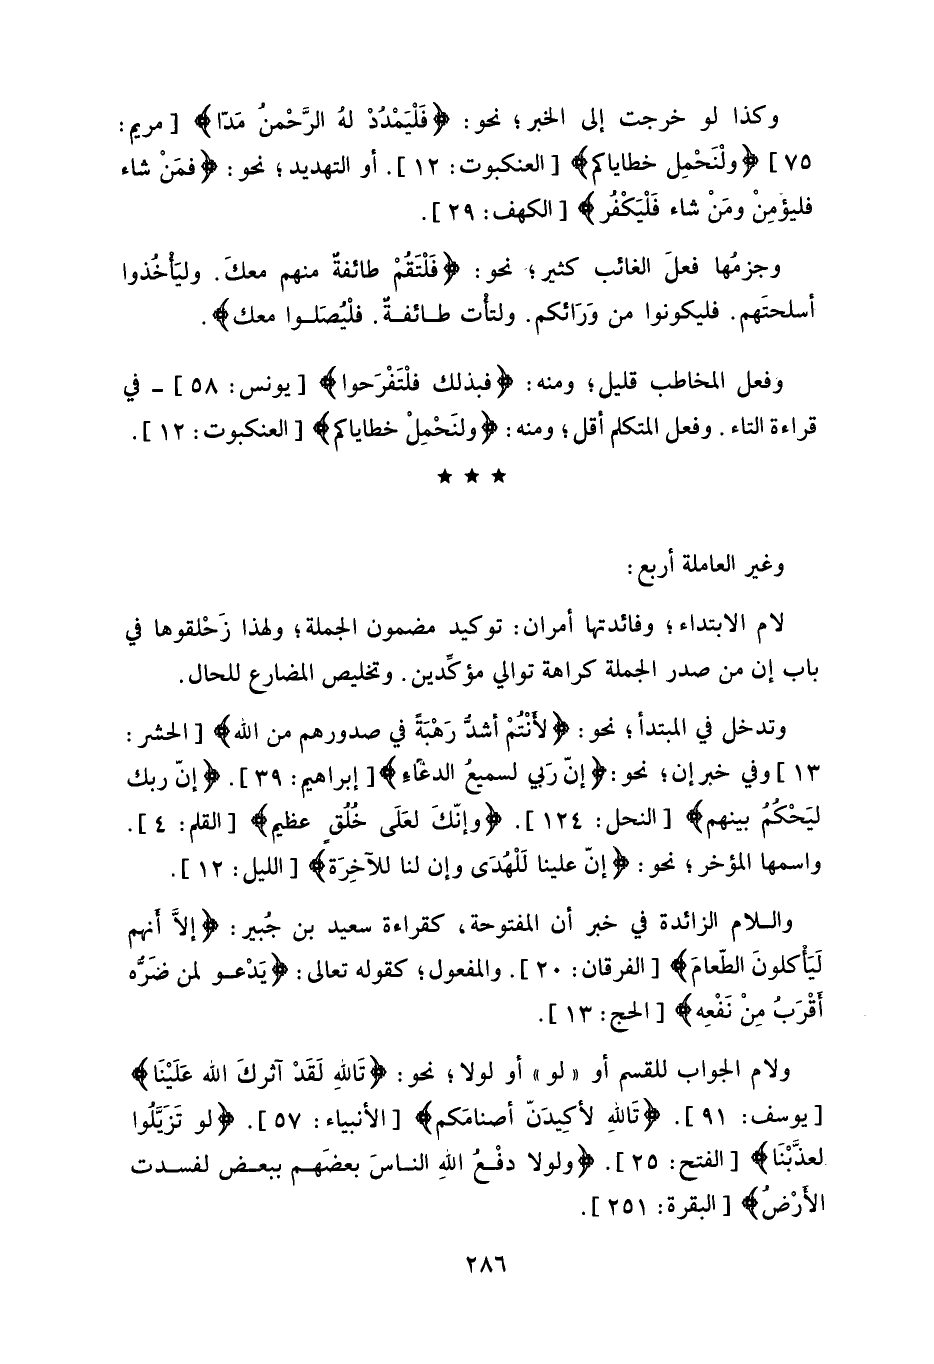 وكذا لو خرجت إلى الخبر؛ نحو: ﴿فَلْيَمْدُدْ لهُ الرَّحْمنُ مَدّا﴾ [مريم:
٧٥] ﴿ولْنَحْمِل خطاياكم﴾ [العنكبوت: ١٢]. أو التهديد؛ نحو: ﴿فمَنْ شاء
فليؤمِنْ ومَنْ شاء فَلْيَكْفُر﴾ [الكهف: ٢٩].
وجزمُها فعلَ الغائب كثير؛ نحو: ﴿فَلْتَقُمْ طائفةٌ منهم معكَ. وليَأْخُذوا
أسلحتَهم. فليكونوا من وَرَائكم. ولتأْت طائفةٌ. فلْيُصَلوا معك﴾.
وفعل المخاطب قليل؛ ومنه: ﴿فبذلك فلْتَفْرَحوا﴾ [يونس: ٥٨] ـ في
قراءة التاء. وفعل المتكلم أقل؛ ومنه: ﴿ولنَحْمِلْ خطاياكم﴾ [العنكبوت: ١٢].
★ ★ ★
وغير العاملة أربع:
لام الابتداء؛ وفائدتها أمران: توكيد مضمون الجملة؛ ولهذا زَحْلقوها في
باب إن من صدر الجملة كراهة توالي مؤكِّدين. وتخليص المضارع للحال.
وتدخل في المبتدأ؛ نحو: ﴿لأَنْتُمْ أشدُّ رَهْبَةً في صدورهم من الله﴾ [الحشر:
١٣] وفي خبر إن؛ نحو: ﴿إنّ رَبي لسميعُ الدعَاء﴾ [إبراهيم: ٣٩]. ﴿إنّ ربك
ليَحْكُمُ بينهم﴾ [النحل: ١٢٤]. ﴿وإنّكَ لعَلَى خُلُقٍ عظيم﴾ [القلم: ٤].
واسمها المؤخر؛ نحو: ﴿إنّ علينا لَلْهُدَى وإن لنا للآخِرَة﴾ [الليل: ١٢].
واللام الزائدة في خبر أن المفتوحة، كقراءة سعيد بن جُبير: ﴿إلاَّ أَنهم
لَيَأْكلونَ الطّعامَ﴾ [الفرقان: ٢٠]. والمفعول؛ كقوله تعالى: ﴿يَدْعو لمن ضَرُّه
أَقْرَبُ مِنْ نَفْعِه﴾ [الحج: ١٣].
ولام الجواب للقسم أو «لو» أو لولا؛ نحو: ﴿تَاللهِ لَقَدْ آثركَ الله عَلَيْنَا﴾
[يوسف: ٩١]. ﴿تَاللهِ لأكِيدَنّ أصنامَكم﴾ [الأنبياء: ٥٧]. ﴿لو تَزَيَّلُوا
لعذَّبْنَا﴾ [الفتح: ٢٥]. ﴿ولولا دفْعُ اللهِ الناسَ بعضَهم ببعض لفسدت
الأَرْضُ﴾ [البقرة: ٢٥١].
٢٨٦